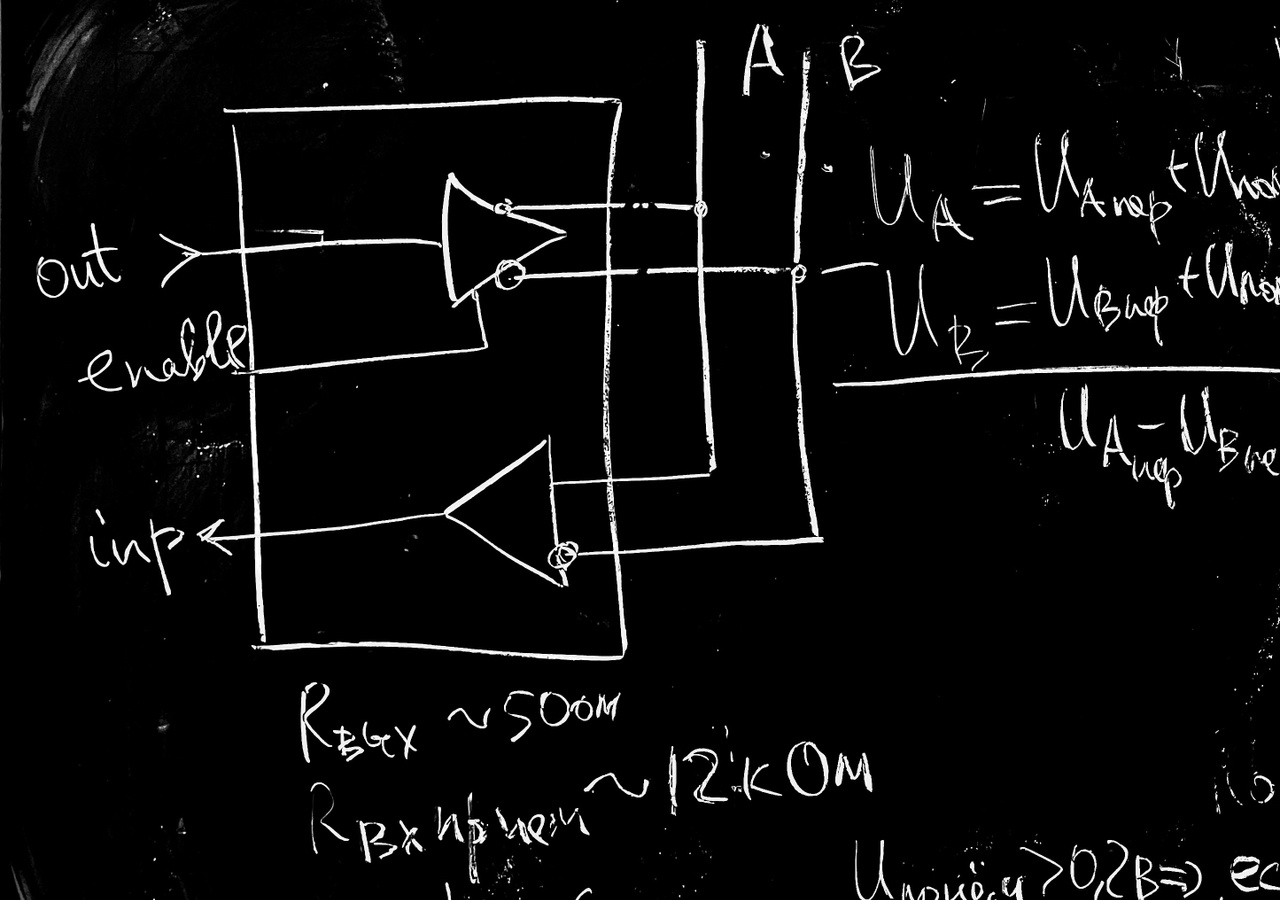 A B
out
enable
inp
U_A = U_A пер + U
U_B = U_B пер + U
U_A пер - U_B пе
R_вых ~ 50 Ом
R_вх приём ~ 12 кОм
U приём > 0,2В => ес